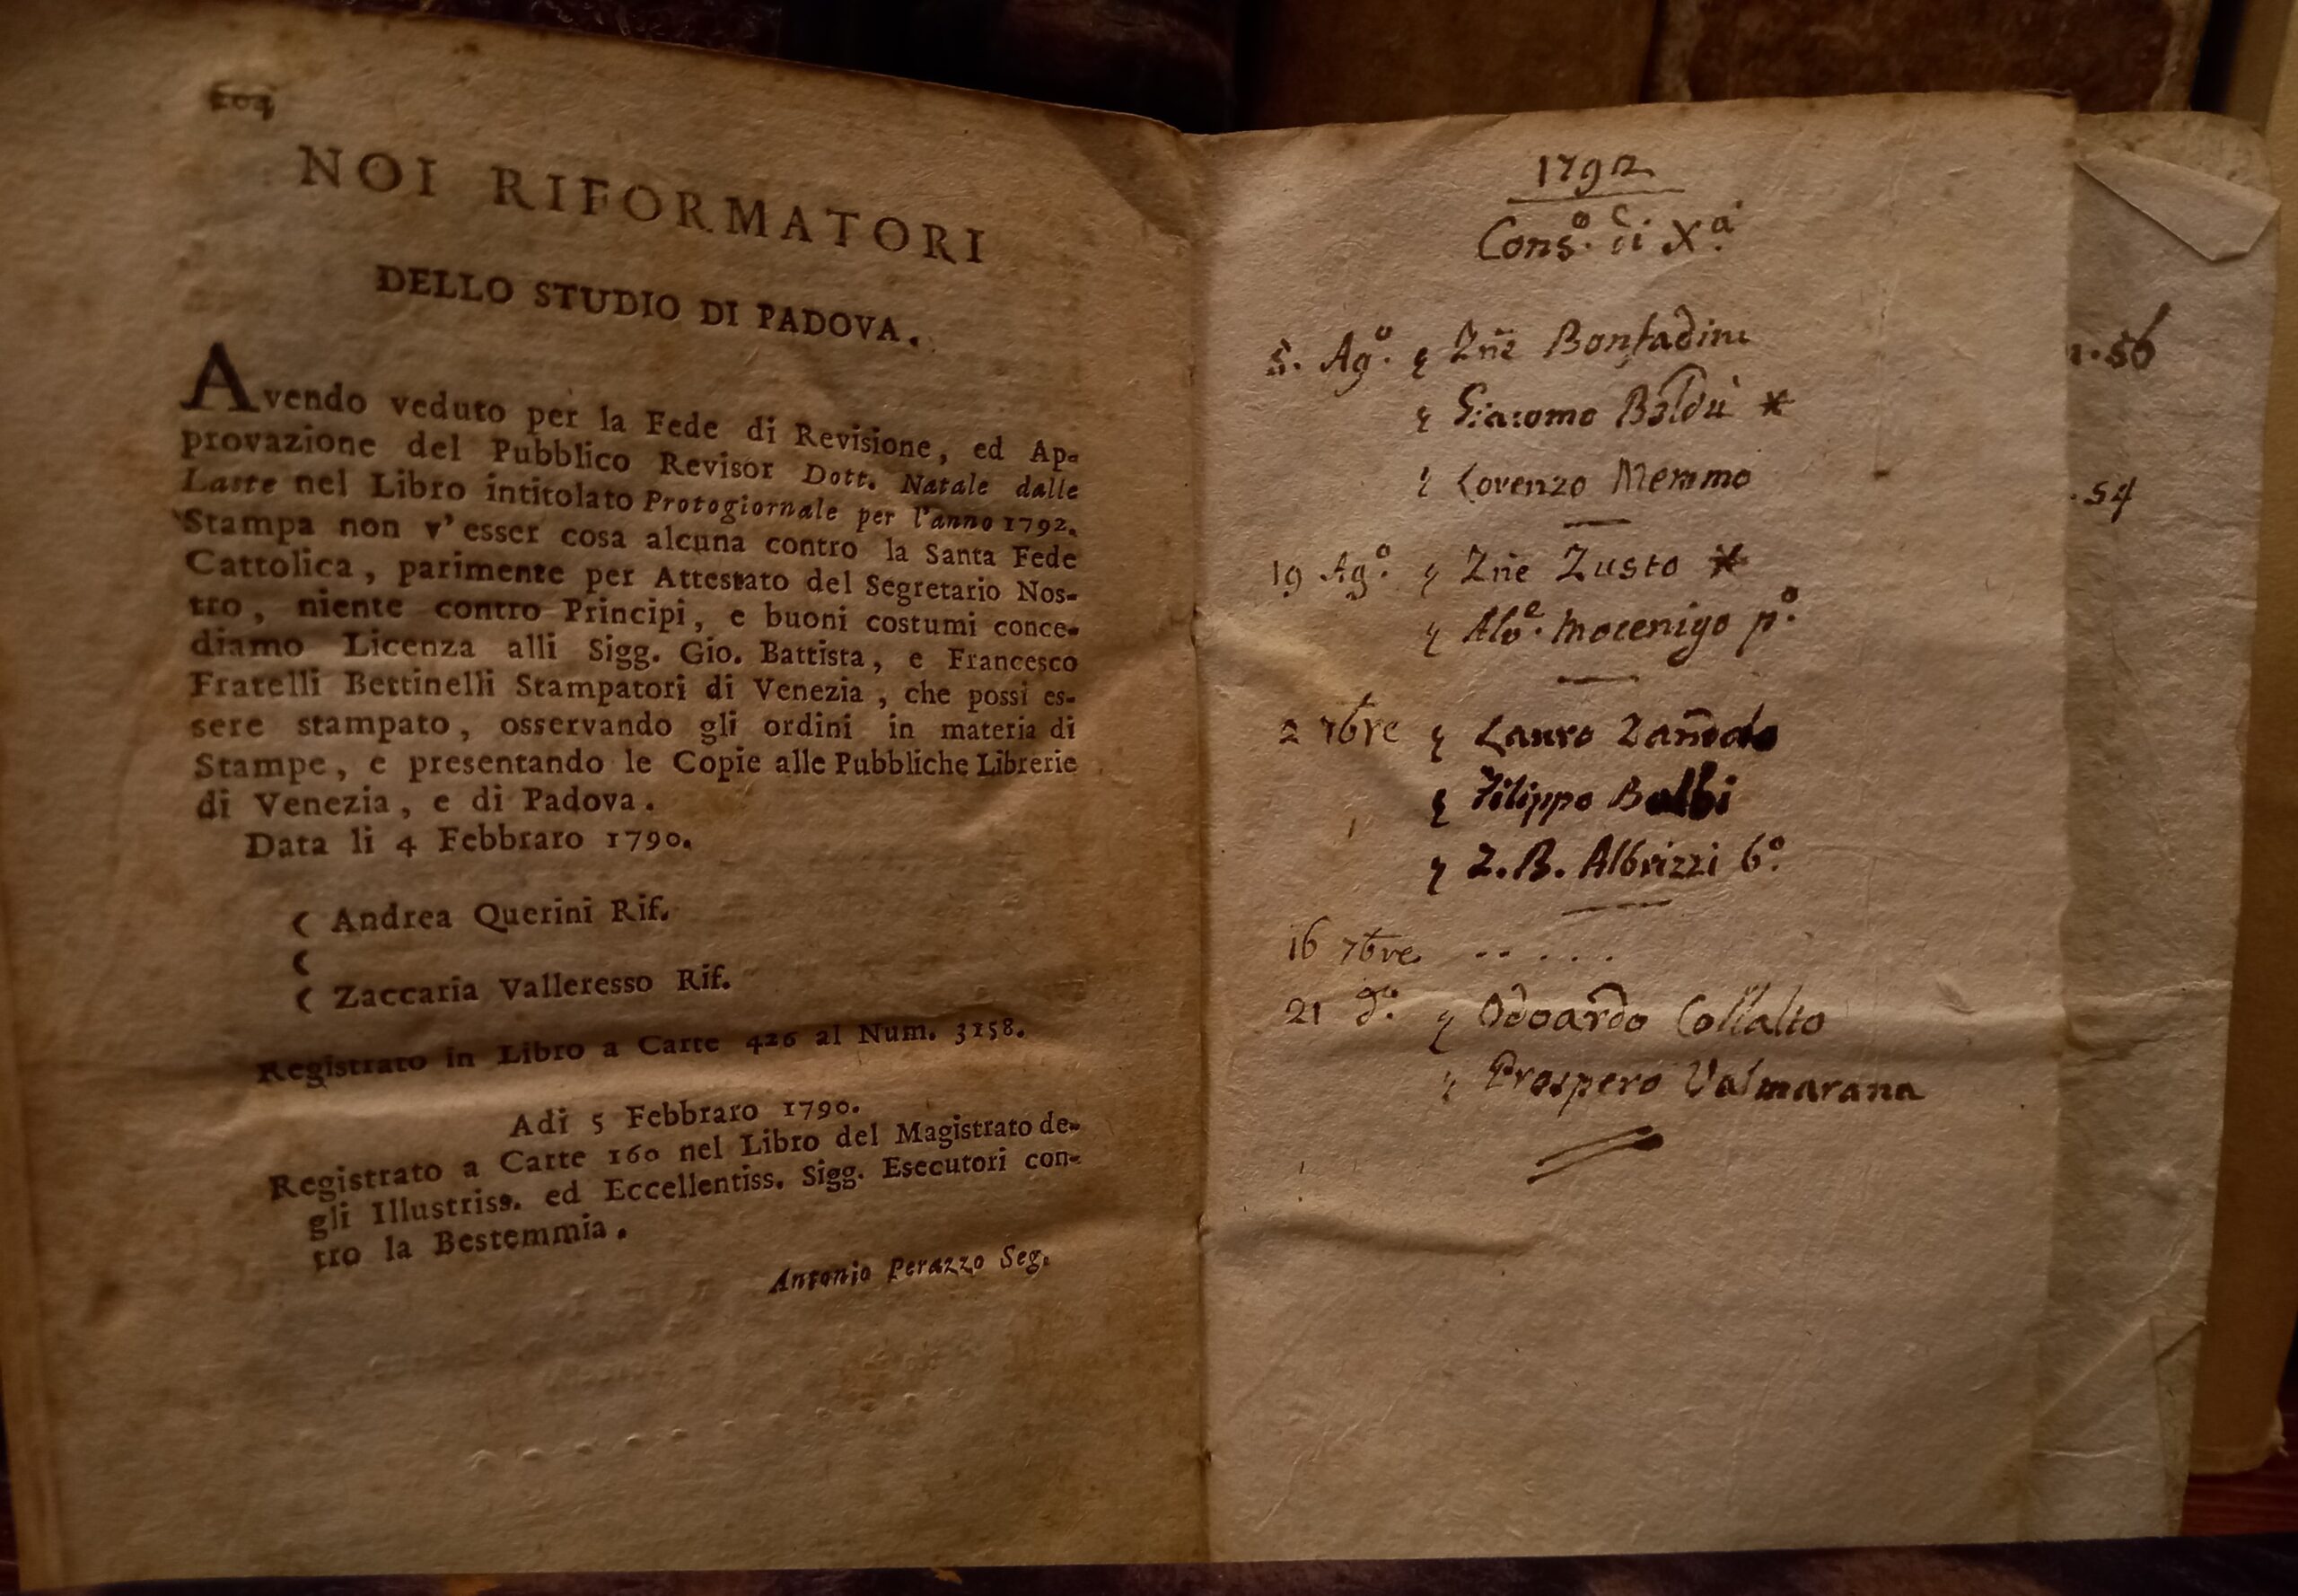 104
NOI RIFORMATORI
DELLO STUDIO DI PADOVA.
Avendo veduto per la Fede di Revisione, ed Ap-
provazione del Pubblico Revisor Dott. Natale dalle
Laste nel Libro intitolato Protogiornale per l'anno 1792.
Stampa non v'esser cosa alcuna contro la Santa Fede
Cattolica, parimente per Attestato del Segretario Nos-
tro, niente contro Principi, e buoni costumi conce-
diamo Licenza alli Sigg. Gio. Battista, e Francesco
Fratelli Bettinelli Stampatori di Venezia, che possi es-
sere stampato, osservando gli ordini in materia di
Stampe, e presentando le Copie alle Pubbliche Librerie
di Venezia, e di Padova.
Data li 4 Febbraro 1790.
( Andrea Querini Rif.
(
( Zaccaria Valleresso Rif.
Registrato in Libro a Carte 426 al Num. 3158.
Adi 5 Febbraro 1790.
Registrato a Carte 160 nel Libro del Magistrato de-
gli Illustriss. ed Eccellentiss. Sigg. Esecutori con-
tro la Bestemmia.
Antonio Perazzo Seg.
1792
Conso. di Xa.
5. Ago. Zñe Bonfadini
Giacomo Boldù *
Lorenzo Memmo
19 Ago. Zñe Zusto *
Alve. Mocenigo po.
2 7bre Lauro
Filippo Balbi
Z. B. Albrizzi 6o.
16 7bre .....
21 do. Odoardo Collalto
Prospero Valmarana
.56
.54